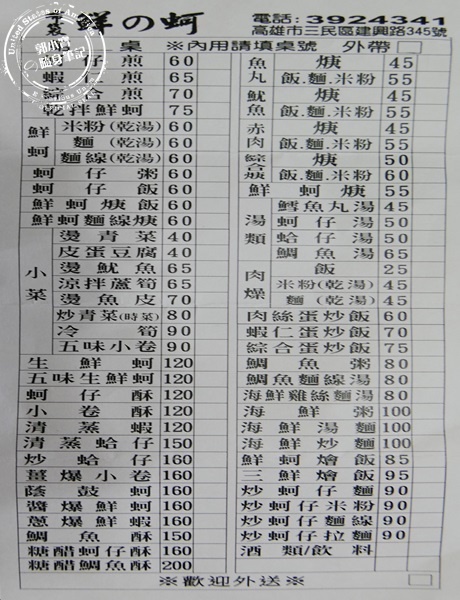 鮮の蚵
電話:3924341
高雄市三民區建興路345號
郭小寶
隨身筆記
桌 ※內用請填桌號 外帶
蚵仔煎 60
蝦仁煎 65
綜合煎 70
乾拌鮮蚵 75
鮮蚵
米粉(乾湯) 60
麵(乾湯) 60
麵線(乾湯) 60
蚵仔粥 60
蚵仔飯 60
鮮蚵焿飯 60
鮮蚵麵線焿 60
小菜
燙青菜 40
皮蛋豆腐 40
燙魷魚 65
涼拌蘆筍 65
燙魚皮 70
炒青菜(時菜) 80
冷筍 90
五味小卷 90
生鮮蚵 120
五味生鮮蚵 120
蚵仔酥 120
小卷酥 120
清蒸蝦 120
清蒸蛤仔 150
炒蛤仔 160
薑爆小卷 160
蔭鼓蚵 160
醬爆鮮蚵 160
蔥爆鮮蝦 160
鯛魚酥 150
糖醋蚵仔酥 160
糖醋鯛魚酥 200
魚丸
焿 45
飯.麵.米粉 55
魷魚
焿 45
飯.麵.米粉 55
赤肉
焿 45
飯.麵.米粉 55
綜合焿
焿 50
飯.麵.米粉 60
鮮蚵焿 55
湯類
鱈魚丸湯 45
蚵仔湯 50
蛤仔湯 50
鯛魚湯 65
肉燥
飯 25
米粉(乾湯) 45
麵(乾湯) 45
肉絲蛋炒飯 60
蝦仁蛋炒飯 70
綜合蛋炒飯 75
鯛魚粥 80
鯛魚麵線湯 80
海鮮雞絲麵湯 80
海鮮粥 100
海鮮湯麵 100
海鮮炒麵 100
鮮蚵燴飯 85
三鮮燴飯 95
炒蚵仔麵 90
炒蚵仔米粉 90
炒蚵仔麵線 90
炒蚵仔拉麵 90
酒類/飲料
※歡迎外送※